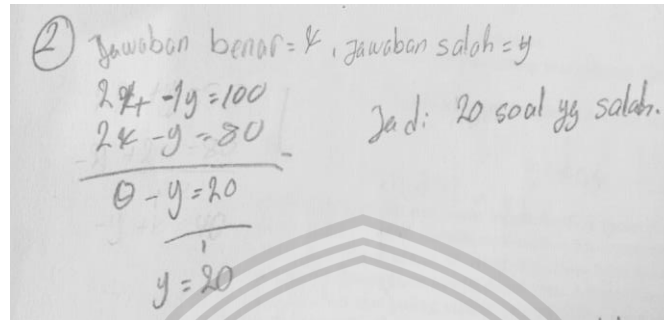 ② Jawaban benar = x, jawaban salah = y
2x + -1y = 100
2x - y = 80
0 - y = 20
y = 20
Jadi 20 soal yg salah.